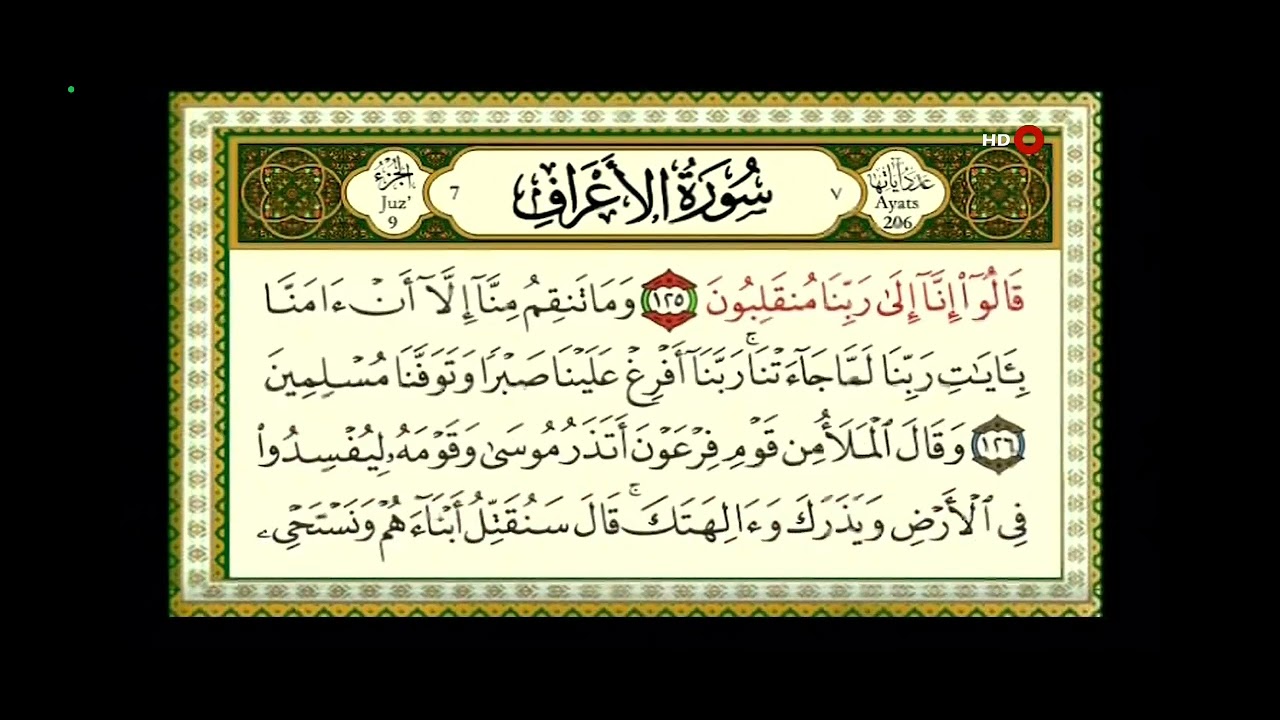 HD
الجزء
Juz'
9
7
سُورَةُ الأَعْرَافِ
٧
عدد آياتها
Ayats
206
قَالُوٓا۟ إِنَّآ إِلَىٰ رَبِّنَا مُنقَلِبُونَ ١٢٥ وَمَا تَنقِمُ مِنَّآ إِلَّآ أَنْ ءَامَنَّا
بِـَٔايَـٰتِ رَبِّنَا لَمَّا جَآءَتْنَا ۚ رَبَّنَآ أَفْرِغْ عَلَيْنَا صَبْرًا وَتَوَفَّنَا مُسْلِمِينَ
١٢٦ وَقَالَ ٱلْمَلَأُ مِن قَوْمِ فِرْعَوْنَ أَتَذَرُ مُوسَىٰ وَقَوْمَهُۥ لِيُفْسِدُوا۟
فِى ٱلْأَرْضِ وَيَذَرَكَ وَءَالِهَتَكَ ۚ قَالَ سَنُقَتِّلُ أَبْنَآءَهُمْ وَنَسْتَحْىِۦ